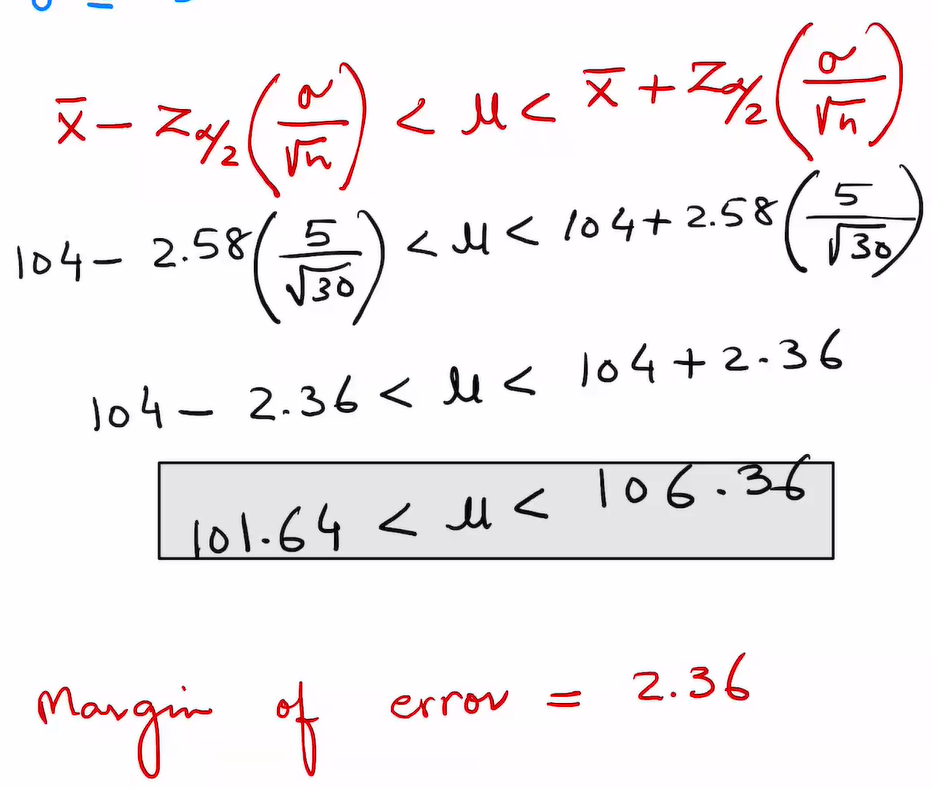 x̄ − Zα/2 (σ/√n) < μ < x̄ + Zα/2 (σ/√n)
104 − 2.58 (5/√30) < μ < 104 + 2.58 (5/√30)
104 − 2.36 < μ < 104 + 2.36
101.64 < μ < 106.36
Margin of error = 2.36